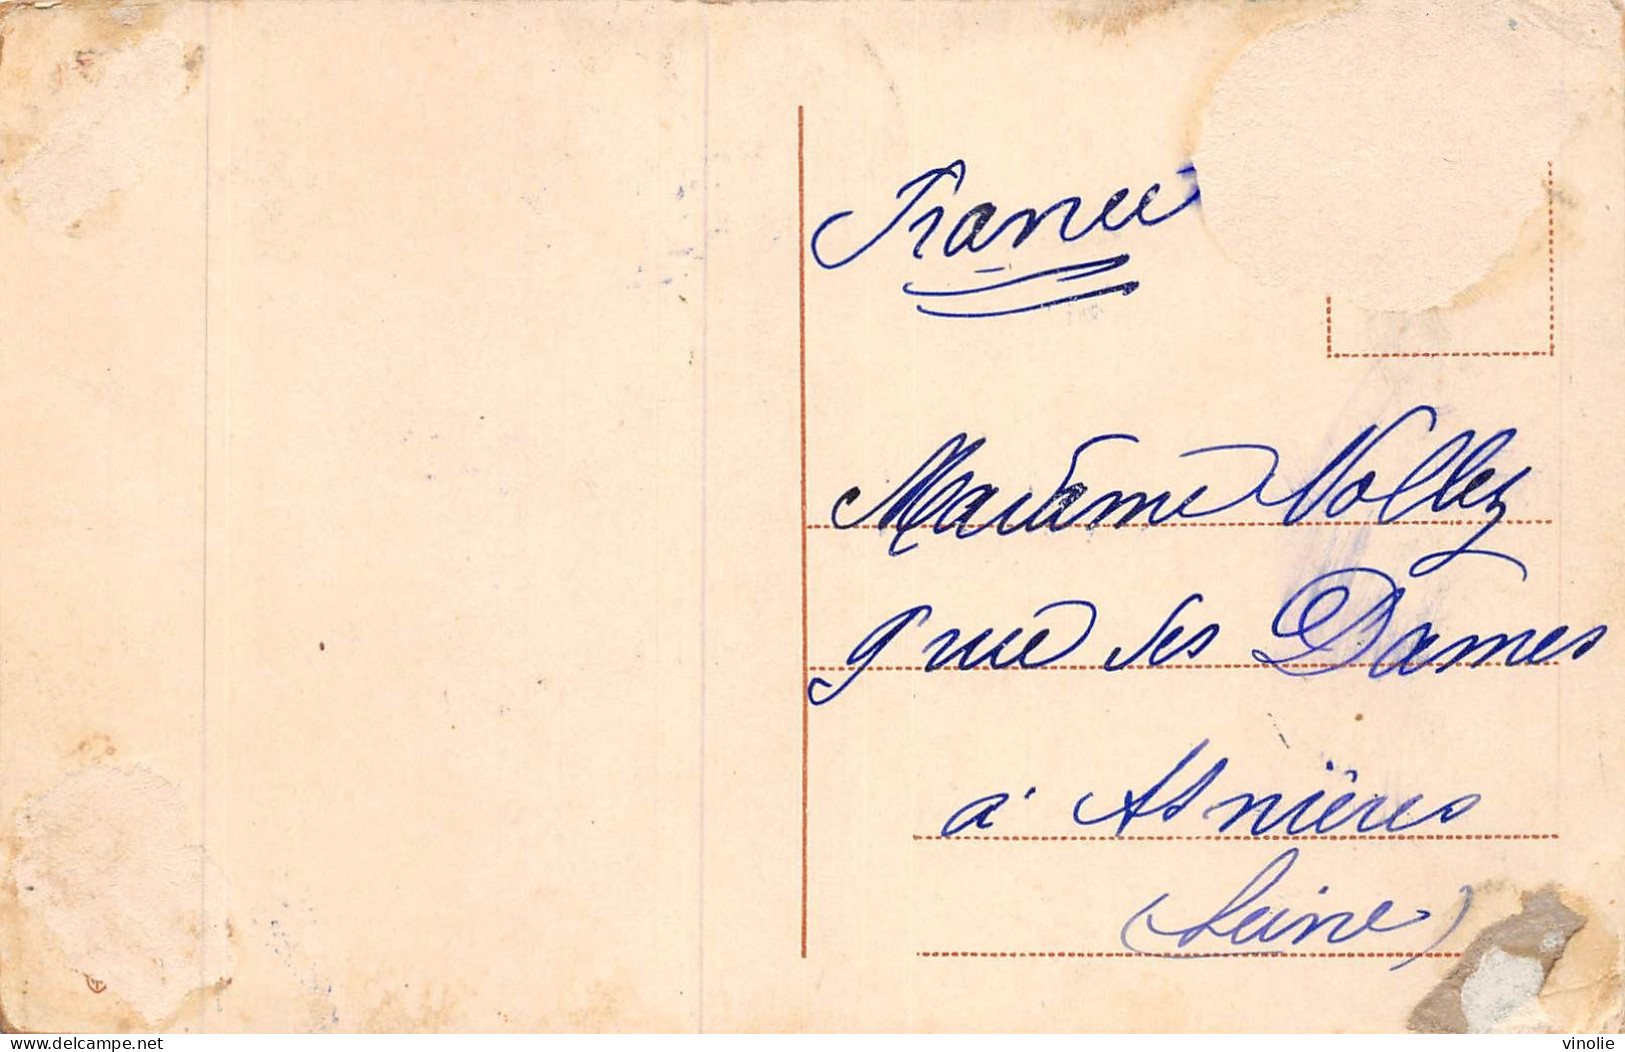 France
Madame Nolley
9 rue des Dames
à Asnières
(Seine)
delcampe.net
vinolie